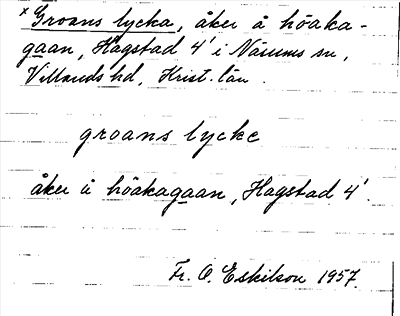 × Groans lycka, åker å höaka-
gaan, Hagstad 4' i Näsums sn,
Villands hd, Krist. län.
groans lycke
åker å höakagaan, Hagstad 4'.
Fr. O. Eskilson 1957.